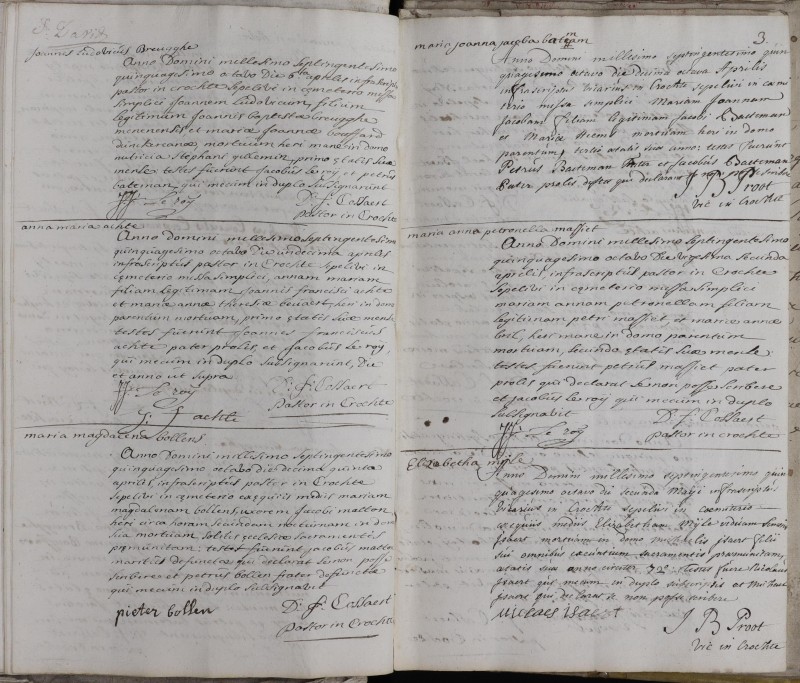 joannes Ludovicus Breugghe
Anno Domini millesimo septingentesimo
quinquagesimo octavo die 6ta aprilis infrascriptus
pastor in crochte sepelivi in cæmeterio missa
simplici Joannem Ludovicum, filium
legitimum joannis baptistæ breugghe
menenensis, et mariæ joannæ bouffard
dunkercanæ mortuum heri mane in domo
nutricis stephani guilemin, primo ætatis suæ
mense testes fuerunt jacobus le roy et petrus
bateman, qui mecum in duplo subsignarunt
le roy D: f: Cossaert
Pastor in Crochte
anna maria achte
Anno domini millesimo septingentesimo
quinquagesimo octavo die undecima aprilis
infrascriptus pastor in Crochte sepelivi in
cæmeterio missa simplici, annam mariam
filiam legitimam joannis francisci achte
et mariæ annæ theresiæ heri in domo
parentum mortuam, primo ætatis suæ mense
testes fuerunt joannes franciscus
achte pater prolis, et jacobus le roy,
qui mecum in duplo subsignarunt, Die
et anno ut supra
le roy D: f: Cossaert
Pastor in Crochte
achte
maria magdalena bollens
Anno Domini millesimo septingentesimo
quinquagesimo octavo die decima quinta
aprilis, infrascriptus pastor in Crochte
sepelivi in cæmeterio exequiis mediis mariam
magdalenam bollens, uxorem jacobi
heri circa horam nocturnam in domo
sua mortuam, solitis ecclesiæ sacramentis
præmunitam; testes fuerunt, jacobus
maritus defunctæ qui declarat se non posse
scribere et petrus bollen frater defunctæ
qui mecum in duplo subsignavit
pieter bollen D: f: Cossaert
Pastor in Crochte
3.
maria joanna jacoba bateman
Anno Domini millesimo septingentesimo quin
quagesimo octavo die decima octava Aprilis
infrascriptus vicarius in Crochte sepelivi in cæme
terio missa simplici Mariam Joannam
Jacobam filiam legitimam Jacobi Baeteman
et Mariæ mortuam heri in domo
parentum, tertio ætatis suæ anno: testes fuerunt
Petrus Baeteman et Jacobus Baeteman
pater prolis qui declarant se non posse scribere
J B Proot
vic in Crochte
maria anna petronella massiet
Anno Domini millesimo Septingentesimo
quinquagesimo octavo Die vigesima secunda
aprilis, infrascriptus pastor in Crochte
sepelivi in cæmeterio missa simplici
mariam annam petronellam filiam
legitimam petri massiet, et mariæ annæ
heri mane in domo parentum
mortuam, secundo ætatis suæ mense:
testes fuerunt petrus massiet pater
prolis qui declarat se non posse scribere
et jacobus le roy qui mecum in duplo
subsignavit
le roy D: f: Cossaert
Pastor in crochte
Elizabetha mijle
Anno Domini millesimo septingentesimo quin
quagesimo octavo die secunda Maij infrascriptus
Vicarius in Crochte sepelivi in cæmeterio
exequiis mediis Elizabetham Mijle viduam
jsaert, mortuam in domo michaelis jsaert filii
sui omnibus sacramentis præmunitam,
ætatis suæ anno circiter 72. testes fuere Nicolaus
jsaert qui mecum in duplo subscripsit et Michael
jsaert qui declarat se non posse scribere
Niclaeis isaert
J B Proot
vic in Crochte